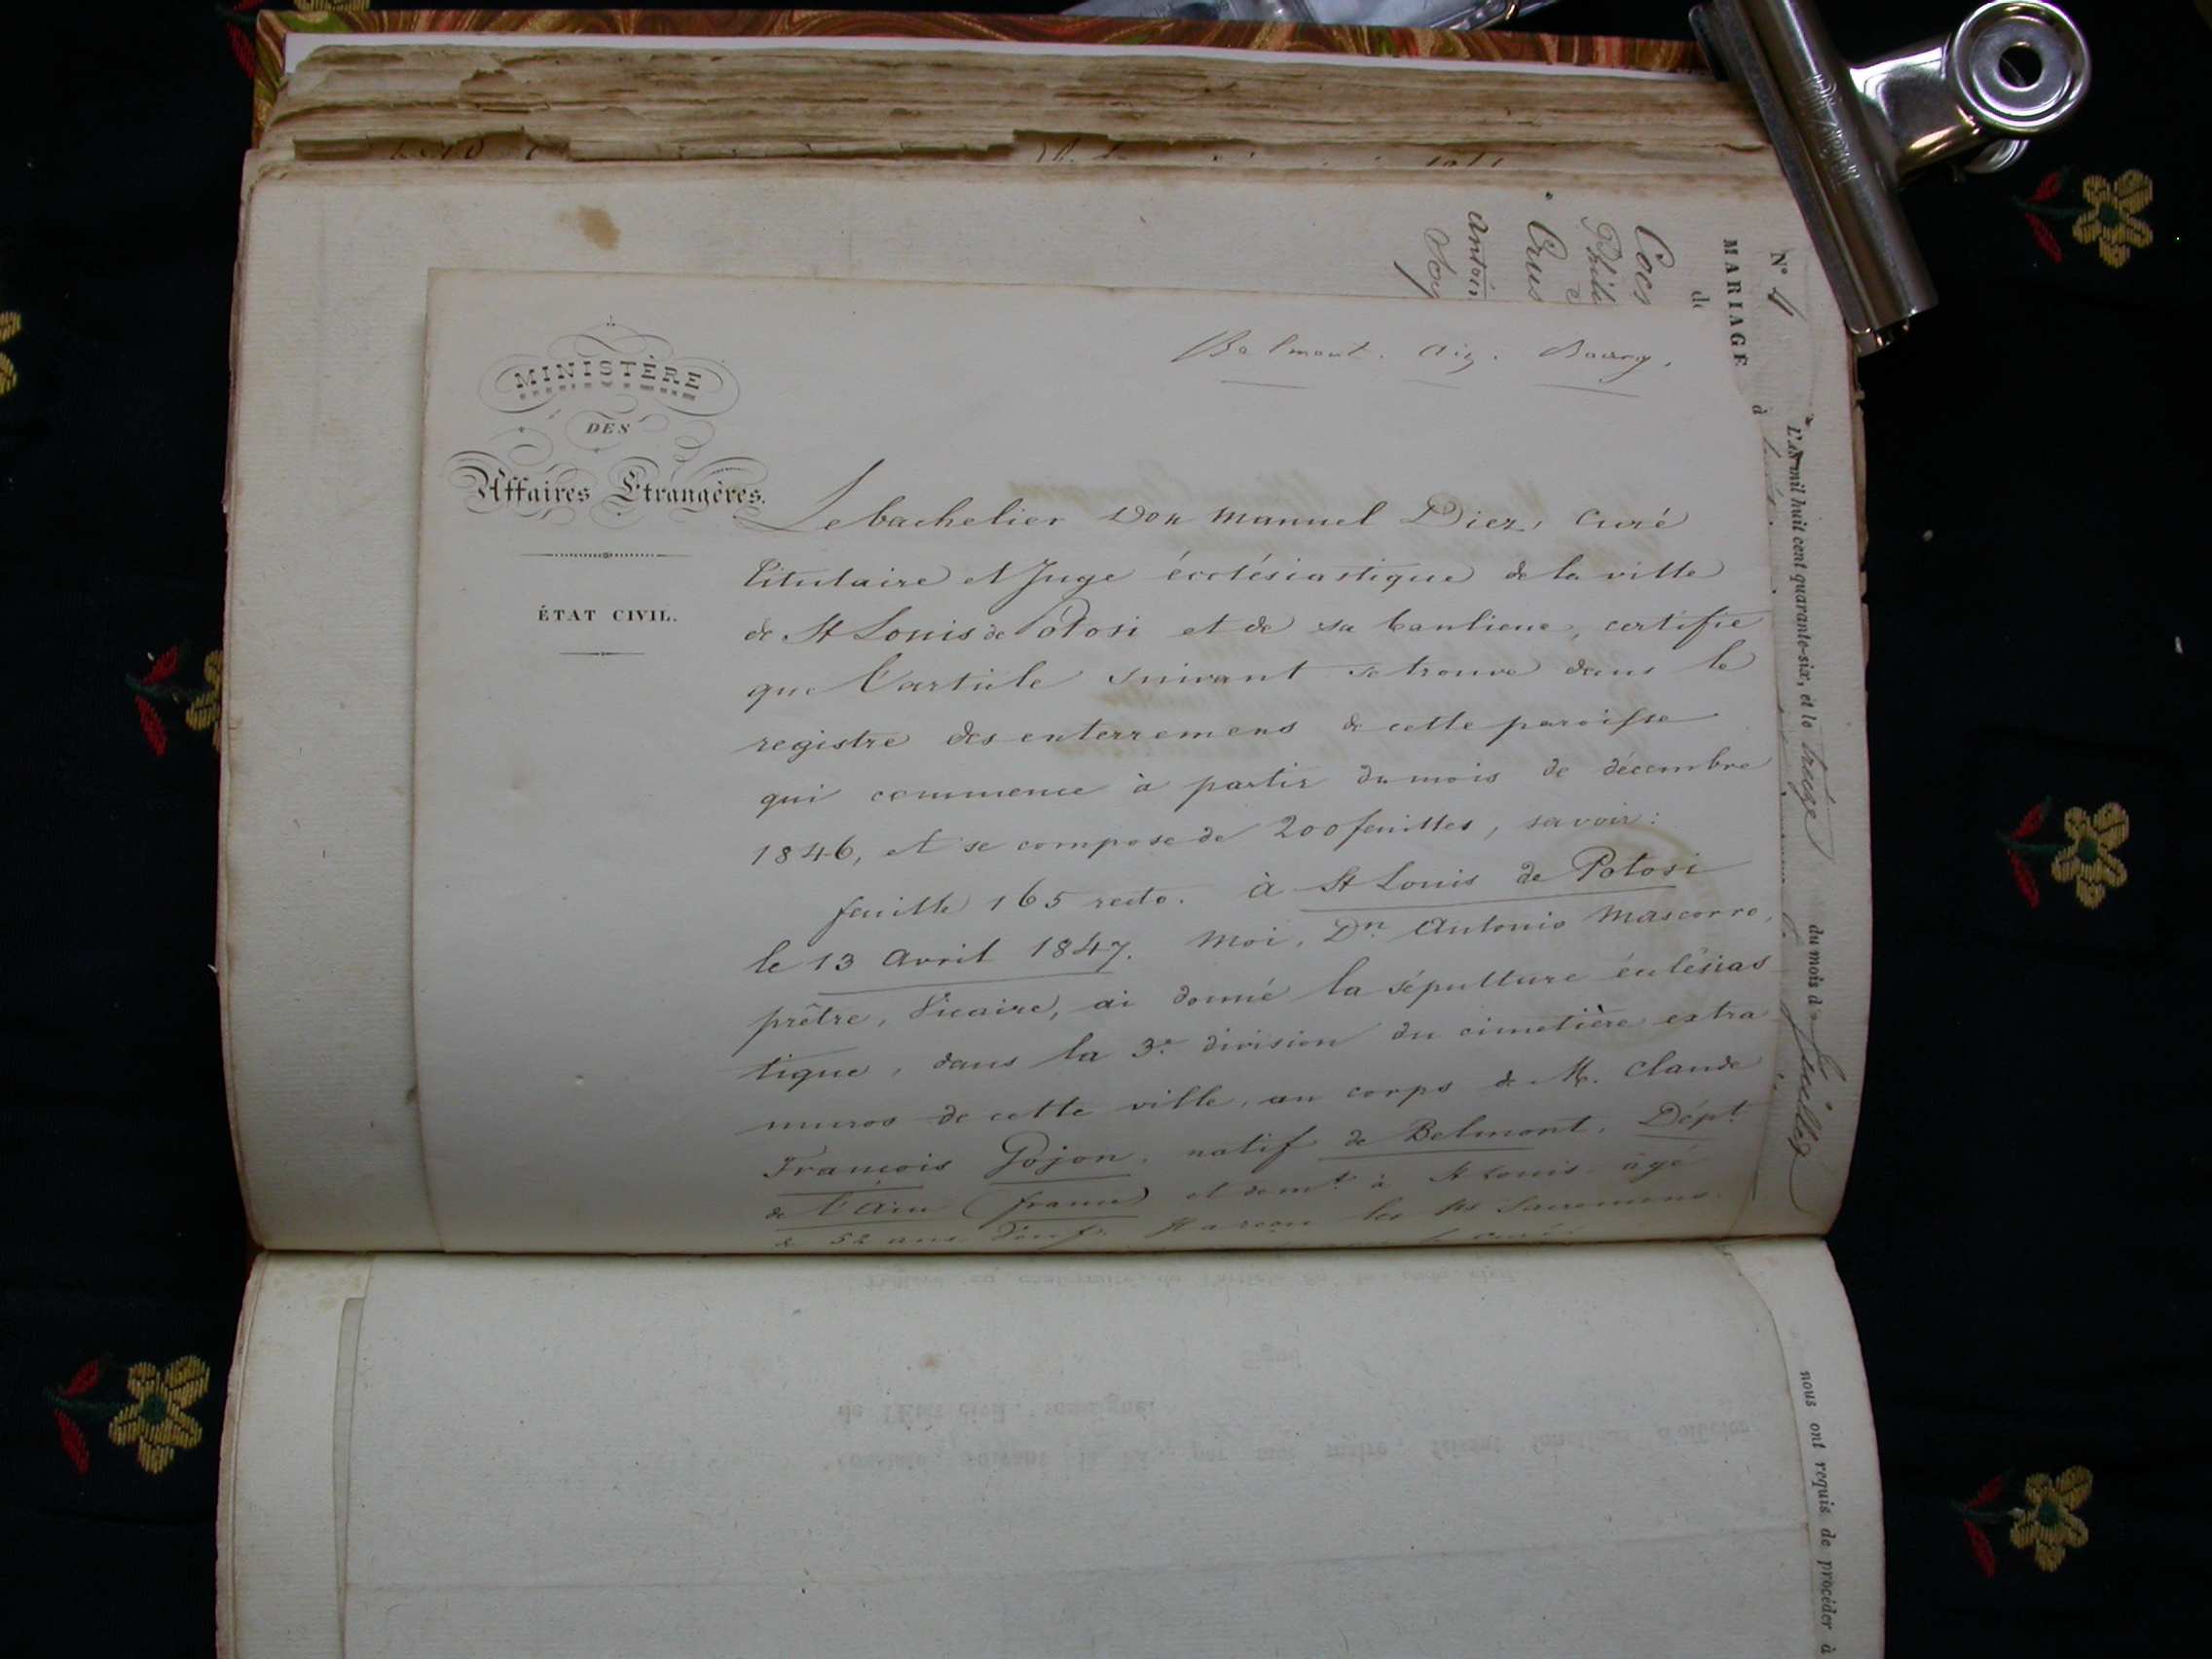 MINISTÈRE
DES
Affaires Etrangères.
ÉTAT CIVIL.
Belmont. Ain. Bourg.
Le bachelier Don Manuel Diez, Curé
titulaire et Juge écclésiastique de la ville
de St Louis de Potosi et de sa banlieue, certifie
que l'article suivant se trouve dans le
registre des enterremens de cette paroisse
qui commence à partir du mois de décembre
1846, et se compose de 200 feuilles, savoir:
feuille 165 recto. à St Louis de Potosi
le 13 Avril 1847. Moi, Dn Antonio Mascorro,
prêtre, Vicaire, ai donné la sépulture éclésias
tique, dans la 3e division du cimetière extra
muros de cette ville, au corps de M. Claude
François Gojon, natif de Belmont, Dépt
de l'Ain (france) et domt à St Louis âgé
de 52 ans Veuf. Il a reçu les Sts Sacremens
N° 4
MARIAGE
de
Cocs
Phili
Crus
Antoin
à
L'AN mil huit cent quarante-six, et le treize
du mois de Juillet
nous ont requis de procéder à